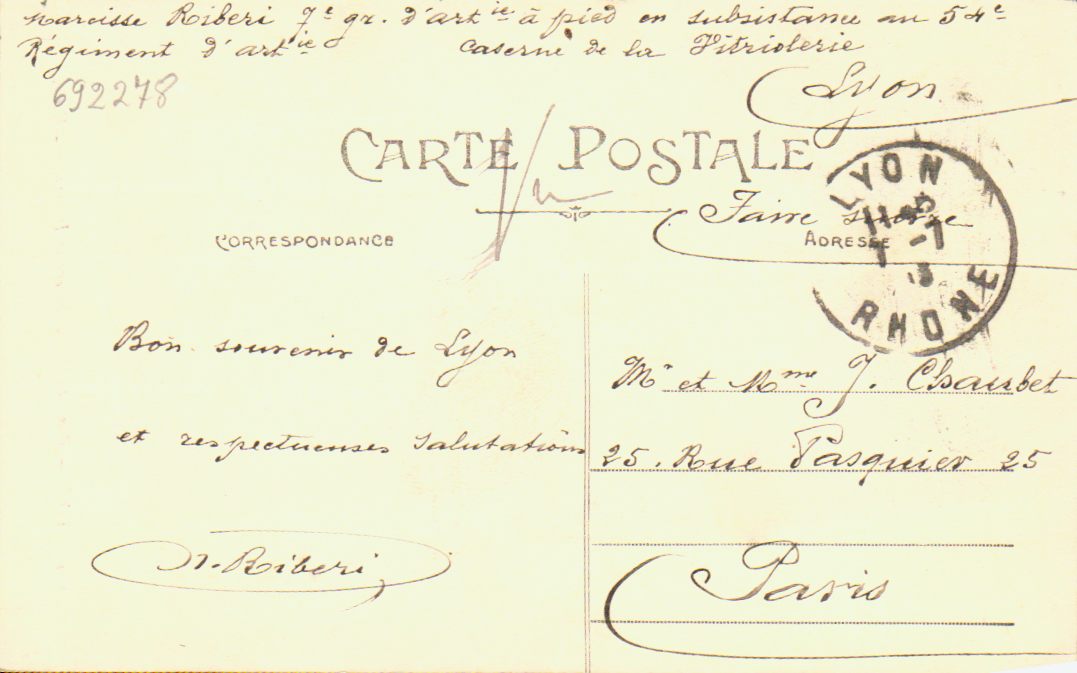 Narcisse Riberi 7e gr. d'artie à pied en subsistance au 54e
Régiment d'artie caserne de la Vitriolerie
Lyon
692278
CARTE POSTALE
Faire suivre
CORRESPONDANCE
ADRESSE
LYON
11 35
7 - 7
RHONE
Bon souvenir de Lyon
et respectueuses salutations
N. Riberi
Mr et Mme J. Chaubet
25. Rue Pasquier 25
Paris